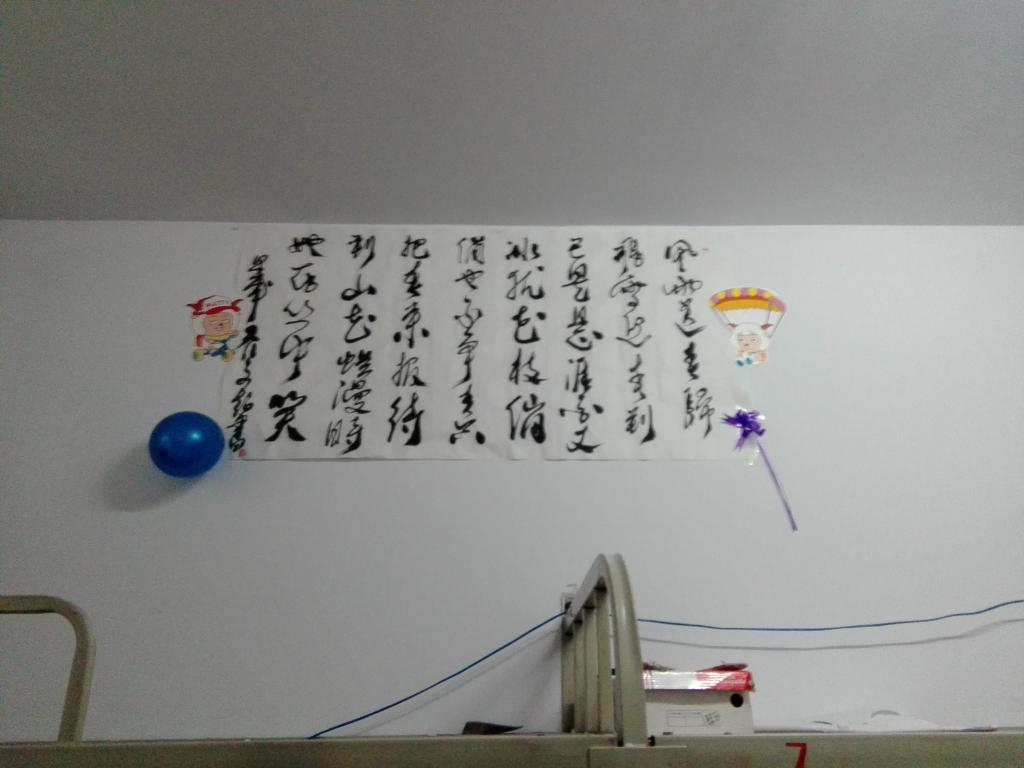 風雨送春歸
飛雪迎春到
已是悬崖百丈
冰犹花枝俏
俏也不争春只
把春来报待
到山花爛漫時
她在丛中笑
7